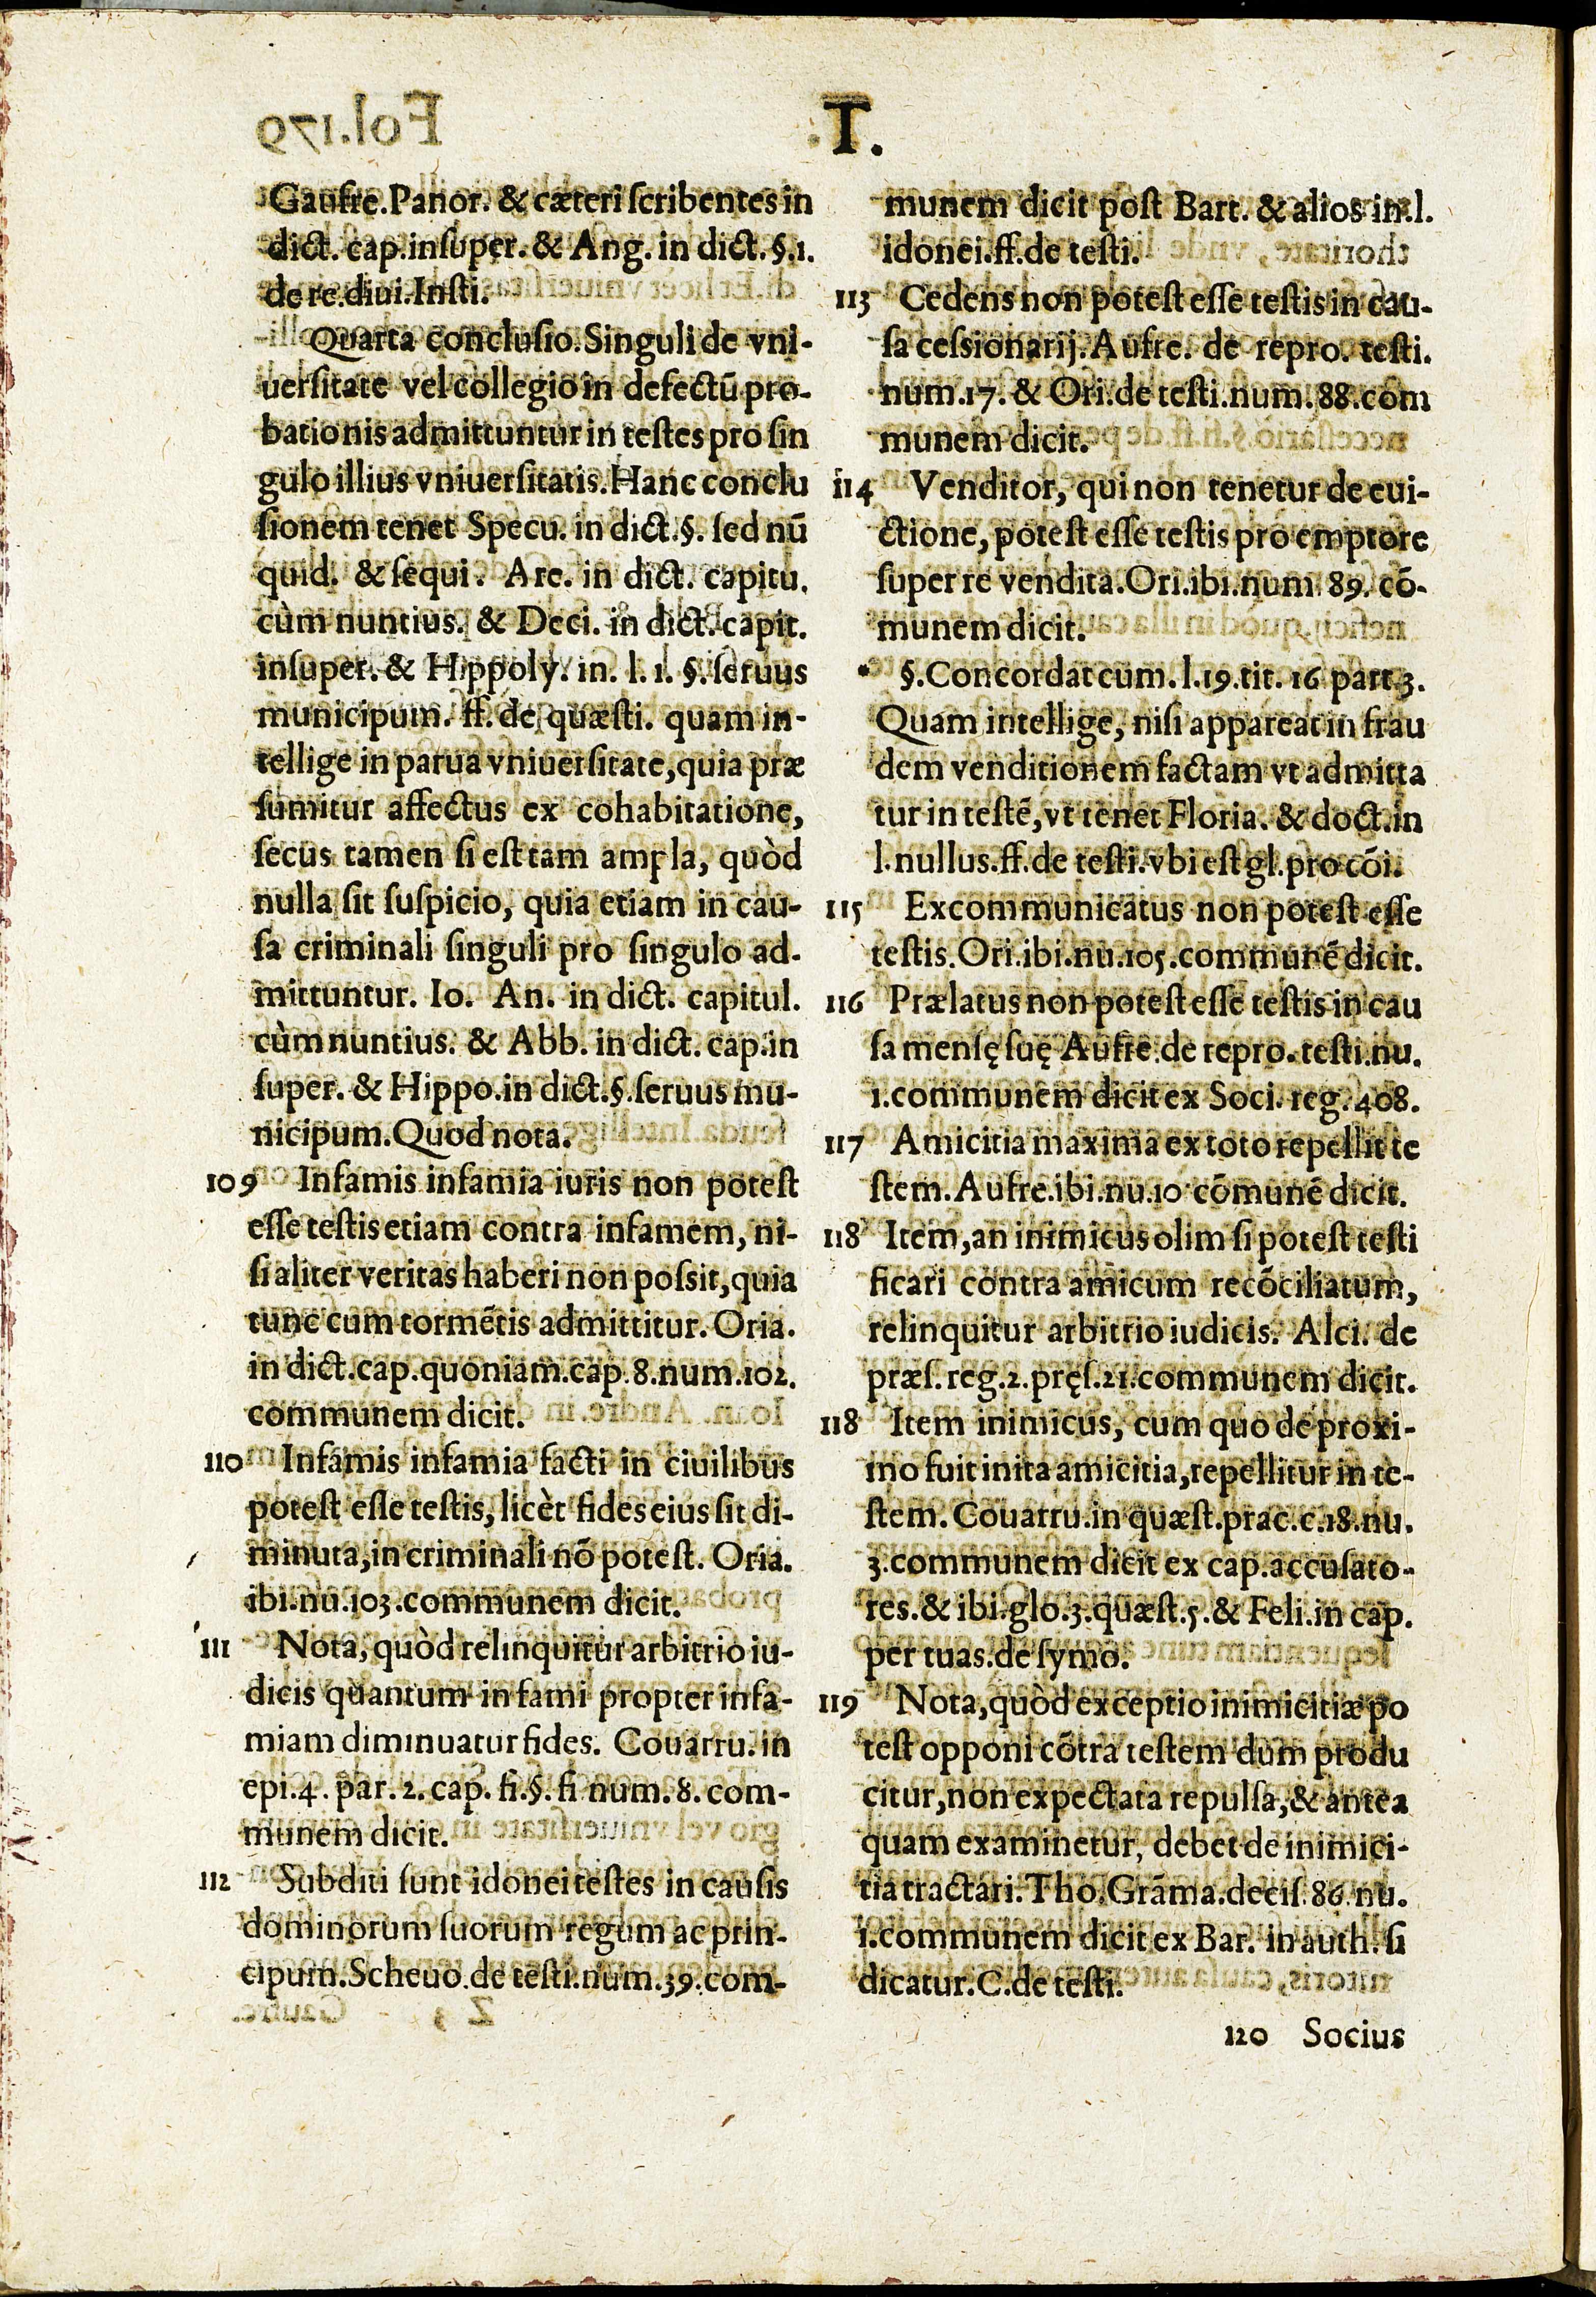 T.
Gaufre.Panor. & cæteri ſcribentes in
dict. cap.inſuper. & Ang. in dict. §.1.
de re.diui.Inſti.
Quarta concluſio.Singuli de vni-
uerſitate vel collegio in defectũ pro-
bationis admittuntur in teſtes pro ſin
gulo illius vniuerſitatis.Hanc conclu
ſionem tenet Specu. in dict.§. ſed nũ
quid. & ſequi. Are. in dict. capitu.
cùm nuntius. & Deci. in dict. capit.
inſuper. & Hippoly. in. l. 1. §. ſeruus
municipum. ff. de quæſti. quam in-
tellige in parua vniuerſitate,quia præ
ſumitur affectus ex cohabitatione,
ſecus tamen ſi eſt tam ampla, quòd
nulla ſit ſuſpicio, quia etiam in cau-
ſa criminali ſinguli pro ſingulo ad-
mittuntur. Io. An. in dict. capitul.
cùm nuntius. & Abb. in dict. cap.in
ſuper. & Hippo.in dict.§.ſeruus mu-
nicipum.Quod nota.
109 Infamis infamia iuris non poteſt
eſſe teſtis etiam contra infamem, ni-
ſi aliter veritas haberi non poſsit,quia
tunc cum tormẽtis admittitur. Oria.
in dict.cap.quoniam.cap.8.num.102.
communem dicit.
110 Infamis infamia facti in ciuilibus
poteſt eſſe teſtis, licèt fides eius ſit di-
minuta,in criminali nõ poteſt. Oria.
ibi.nu.103.communem dicit.
111 Nota, quòd relinquitur arbitrio iu-
dicis quantum infami propter infa-
miam diminuatur fides. Couarru. in
epi.4. par. 2. cap. fi.§. fi num. 8. com-
munem dicit.
112 Subditi ſunt idonei teſtes in cauſis
dominorum ſuorum regum ac prin-
cipum.Scheuo.de teſti.num.39.com-
munem dicit poſt Bart. & alios in.l.
idonei.ff.de teſti.
113 Cedens non poteſt eſſe teſtis in cau-
ſa ceſsionarij.Aufre. de repro. teſti.
num.17. & Ori.de teſti.num.88.com
munem dicit.
114 Venditor, qui non tenetur de eui-
ctione, poteſt eſſe teſtis pro emptore
ſuper re vendita.Ori.ibi.num. 89. cõ-
munem dicit.
* §.Concordat cum.l.19.tit. 16 part.3.
Quam intellige, niſi appareat in frau
dem venditionem factam vt admitta
tur in teſtẽ,vt tenet Floria. & doct.in
l.nullus.ff.de teſti.vbi eſt gl.pro cõi.
115 Excommunicatus non poteſt eſſe
teſtis.Ori.ibi.nu.105.communẽ dicit.
116 Prælatus non poteſt eſſe teſtis in cau
ſa menſę ſuę Aufre.de repro.teſti.nu.
1.communem dicit ex Soci. reg.408.
117 Amicitia maxima ex toto repellit te
ſtem.Aufre.ibi.nu.10 cõmunẽ dicit.
118 Item,an inimicus olim ſi poteſt teſti
ficari contra amicum recõciliatum,
relinquitur arbitrio iudicis. Alci. de
præſ.reg.2.pręſ.21.communem dicit.
118 Item inimicus, cum quo de proxi-
mo fuit inita amicitia,repellitur in te-
ſtem. Couarru.in quæſt.prac.c.18.nu.
3.communem dicit ex cap.accuſato-
res.& ibi.glo.3.quæſt.5.& Feli.in cap.
per tuas.de ſymo.
119 Nota,quòd exceptio inimicitiæ po
teſt opponi cõtra teſtem dum produ
citur,non expectata repulſa,& antea
quam examinetur, debet de inimici-
tia tractari.Tho.Grãma.deciſ.86.nu.
1.communem dicit ex Bar. in auth. ſi
dicatur.C.de teſti.
120 Socius